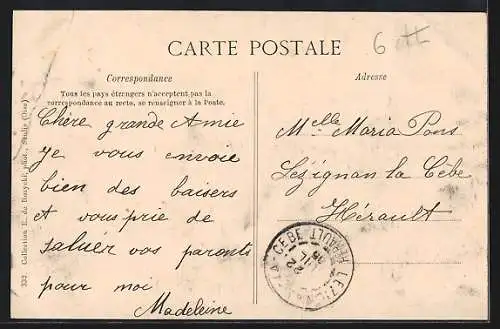 6
CARTE POSTALE
Correspondance
Tous les pays étrangers n'acceptent pas la
correspondance au recto, se renseigner à la Poste.
Adresse
Chère grande Amie
Je vous envoie
bien des baisers
et vous prie de
saluer vos parents
pour moi
Madeleine
Melle Maria Pons
Lézignan la Cèbe
Hérault
LA-CEBE HERAULT
22
332 Collection E. de
phot.
(Oise)